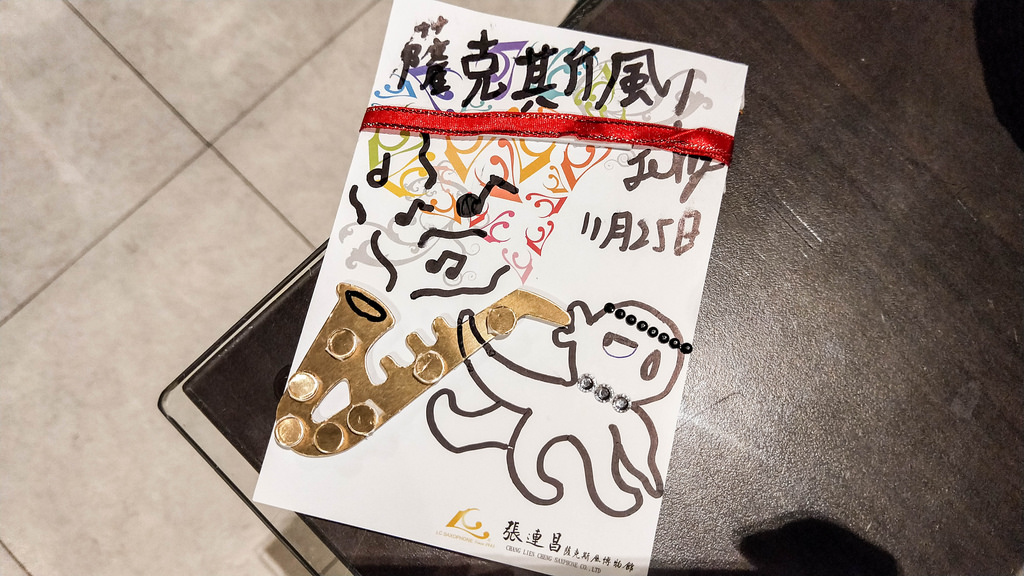 薩克斯風
Jelly
11月25日
LC SAXOPHONE Since 1945
張連昌薩克斯風博物館
CHANG LIEN CHENG SAXPHONE CO.,LTD